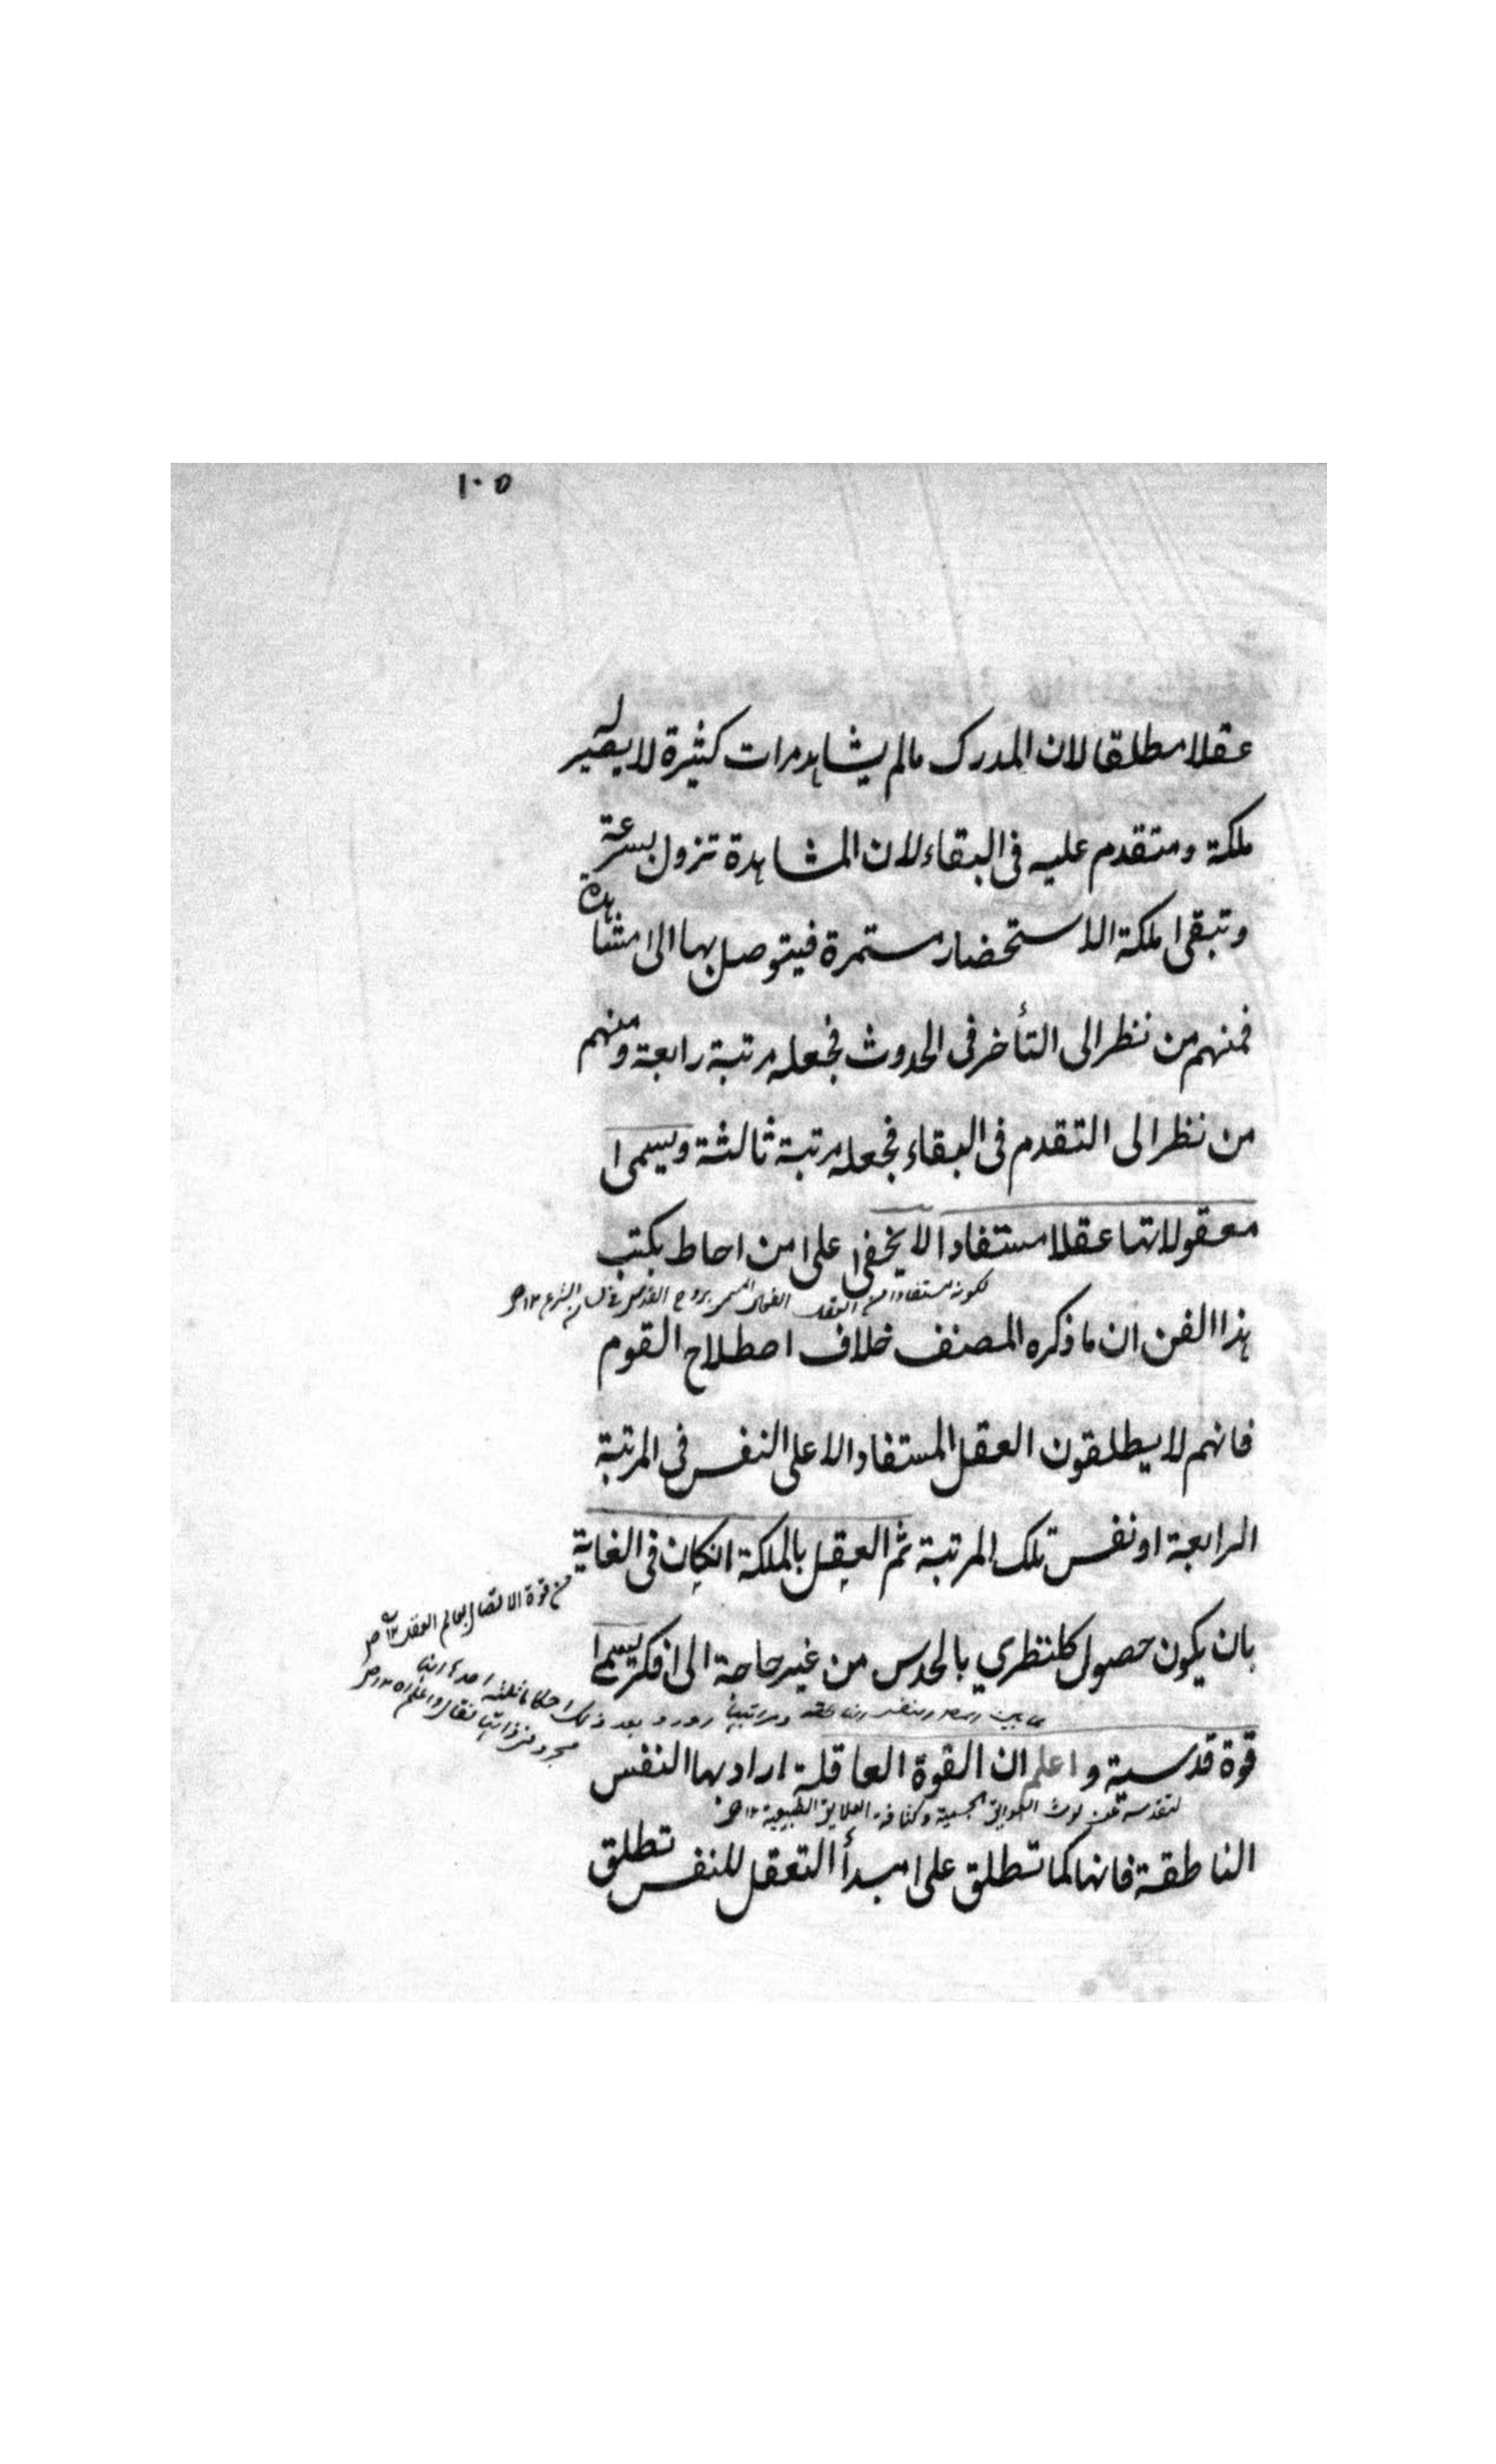 ١٠٥
عقلا مطلقا لان المدرك مالم يشاهد مرات كثيرة لا يصير
ملكة ومتقدم عليه فى البقاء لان المشاهدة تزول بسرعة
وتبقى ملكة الاستحضار مستمرة فيتوصل بها الى مشاهدة
فمنهم من نظر الى التأخر فى الحدوث فجعله مرتبة رابعة ومنهم
من نظر الى التقدم فى البقاء فجعله مرتبة ثالثة ويسمى
معقولاتها عقلا مستفادا لا يخفى على من احاط بكتب
لكونه مستفادا من العقل الفعال المسمى بروح القدس فى لسان الشرع ١٢
هذا الفن ان ما ذكره المصنف خلاف اصطلاح القوم
فانهم لا يطلقون العقل المستفاد الا على النفس فى المرتبة
الرابعة او نفس تلك المرتبة ثم العقل بالملكة انكان فى الغاية
من قوة الاتصال بعالم العقل ١٢
بان يكون حصول كل نظري بالحدس من غير حاجة الى فكر يسمى
ومراتبها بعد ذلك احكاما
فقال واعلم ١٢
قوة قدسية واعلم ان القوة العاقلة اراد بها النفس
لتقدسه عن لوث الجسمية وكثافة العلايق الطبيعية ١٢
الناطقة فانها كما تطلق على مبدأ التعقل للنفس تطلق